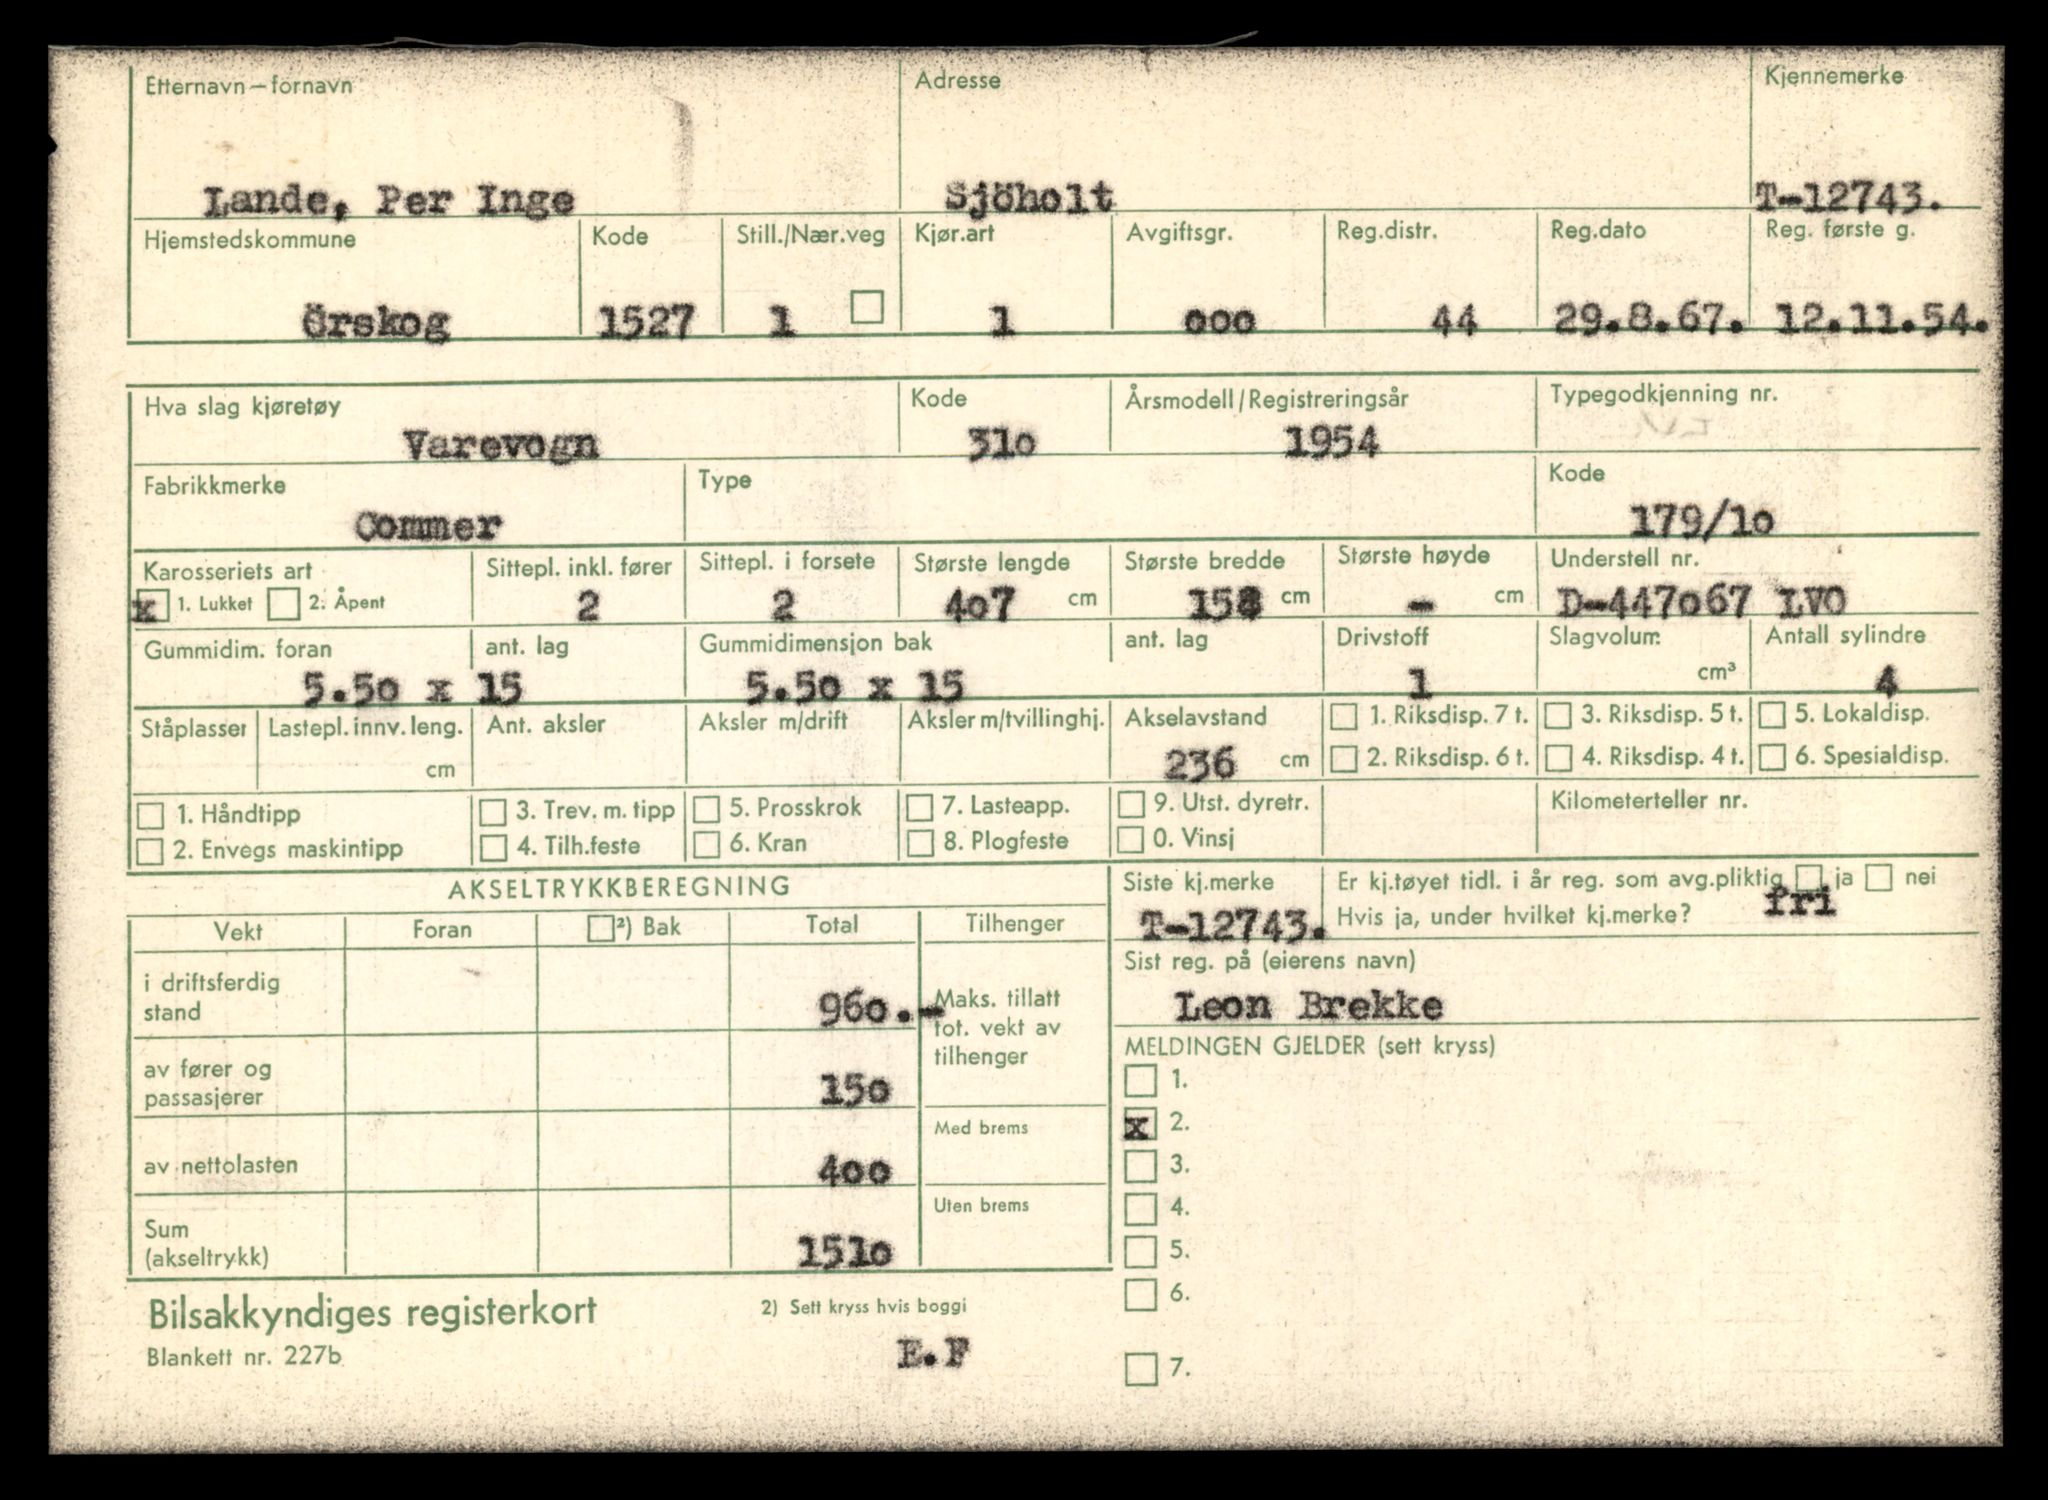 Etternavn – fornavn Adresse Kjennemerke
Lande, Per Inge Sjöholt T-12743.
Hjemstedskommune Kode Still./Nær.veg Kjør.art Avgiftsgr. Reg.distr. Reg.dato Reg. første g.
Örskog 1527 1 1 ooo 44 29.8.67. 12.11.54.
Hva slag kjøretøy Kode Årsmodell/Registreringsår Typegodkjenning nr.
Varevogn 31o 1954
Fabrikkmerke Type Kode
Commer 179/1o
Karosseriets art Sittepl. inkl. fører Sittepl. i forsete Største lengde Største bredde Største høyde Understell nr.
x 1. Lukket 2. Åpent 2 2 4o7 cm 158 cm - cm D-447o67 LVO
Gummidim. foran ant. lag Gummidimensjon bak ant. lag Drivstoff Slagvolum Antall sylindre
5.5o x 15 5.5o x 15 1 cm³ 4
Ståplasser Lastepl. innv. leng. Ant. aksler Aksler m/drift Aksler m/tvillinghj. Akselavstand 1. Riksdisp. 7 t. 3. Riksdisp. 5 t. 5. Lokaldisp.
cm 236 cm 2. Riksdisp. 6 t. 4. Riksdisp. 4 t. 6. Spesialdisp.
1. Håndtipp 3. Trev. m. tipp 5. Prosskrok 7. Lasteapp. 9. Utst. dyretr. Kilometerteller nr.
2. Envegs maskintipp 4. Tilh.feste 6. Kran 8. Plogfeste 0. Vinsj
AKSELTRYKKBEREGNING Siste kj.merke Er kj.tøyet tidl. i år reg. som avg.pliktig ja nei
T-12743. Hvis ja, under hvilket kj.merke? fri
Vekt Foran ²) Bak Total Tilhenger
Sist reg. på (eierens navn)
Leon Brekke
i driftsferdig
stand 96o.-
Maks. tillatt
tot. vekt av
tilhenger
MELDINGEN GJELDER (sett kryss)
av fører og
passasjerer 15o
1.
Med brems
x 2.
av nettolasten 4oo
3.
Uten brems
4.
Sum
(akseltrykk) 151o
5.
6.
Bilsakkyndiges registerkort 2) Sett kryss hvis boggi
Blankett nr. 227b E.F
7.